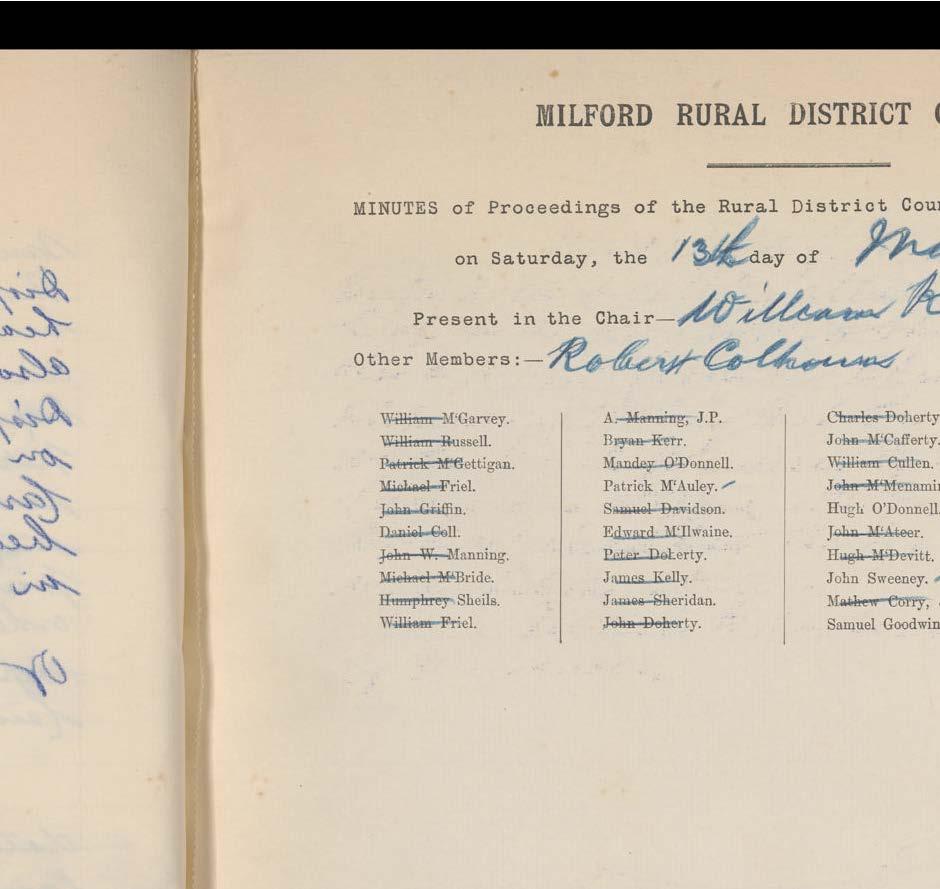 MILFORD RURAL DISTRICT
MINUTES of Proceedings of the Rural District Coun
on Saturday, the 13th day of Ma
Present in the Chair— William
Other Members:— Robert Colhouns
William M‘Garvey.
William Russell.
Patrick M‘Gettigan.
Michael Friel.
John Griffin.
Daniel Coll.
John W. Manning.
Michael M‘Bride.
Humphrey Sheils.
William Friel.
A. Manning, J.P.
Bryan Kerr.
Mandey O’Donnell.
Patrick M‘Auley.
Samuel Davidson.
Edward M‘Ilwaine.
Peter Doherty.
James Kelly.
James Sheridan.
John Doherty.
Charles Doherty
John M‘Cafferty.
William Cullen.
John M‘Menamin
Hugh O’Donnell.
John M‘Ateer.
Hugh M‘Devitt.
John Sweeney.
Mathew Corry,
Samuel Goodwin